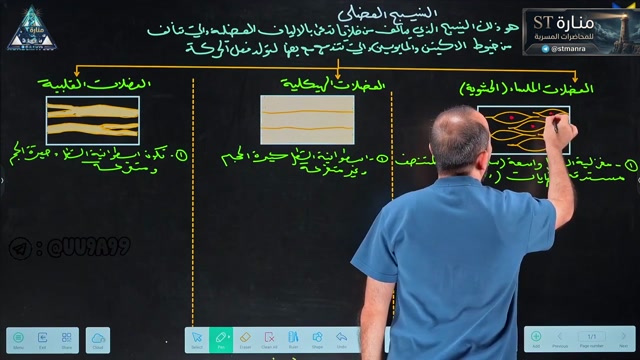 النسيج العضلي
هو ذلك النسيج الذي يتألف من خلايا تدعى بالالياف العضلية والتي تتألف
من خيوط الاكتين والمايوسين والتي تندمج مع بعضها لتولد فعل الحركة
منارة ST
للمحاضرات المسربة
@stmanra
العضلات الملساء (الحشوية)
العضلات الهيكلية
العضلات القلبية
① - مغزلية الشكل واسعة
مستدقة النهايات
① - اسطوانية الشكل كبيرة الحجم
وغير متفرعة
① - تكون اسطوانية الشكل صغيرة الحجم
ومتفرعة
: @UU9A99
Menu
Exit
Share
Cloud
Select
Pen
Eraser
Clear All
Tools
Undo
Add
Previous
1/1
Page number
Next